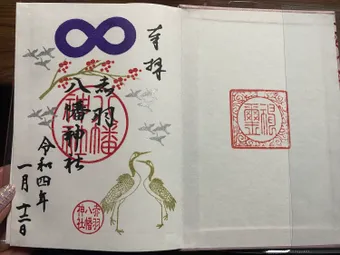 奉拝
赤羽
八幡神社
令和四年
一月十二日
八幡
神社
赤羽
八幡
神社